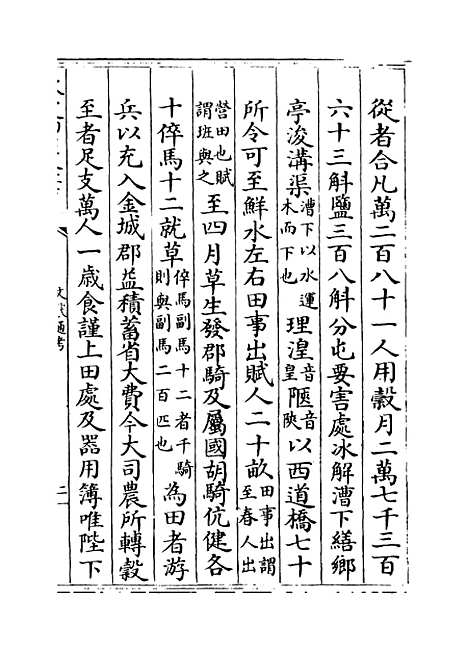 從者合凡萬二百八十一人用穀月二萬七千三百
六十三斛鹽三百八斛分屯要害處冰解漕下繕鄉
亭浚溝渠漕下以水運木而下也理湟音皇陿音陜以西道橋七十
所令可至鮮水左右田事出賦人二十畝田事出謂至春人出
營田也賦謂班與之至四月草生發郡騎及屬國胡騎伉健各
十倅馬十二就草倅馬副馬十二者千騎則與副馬二百匹也為田者游
兵以充入金城郡益積蓄省大費今大司農所轉穀
至者足支萬人一歲食謹上田處及器用簿唯陛下
文獻通考